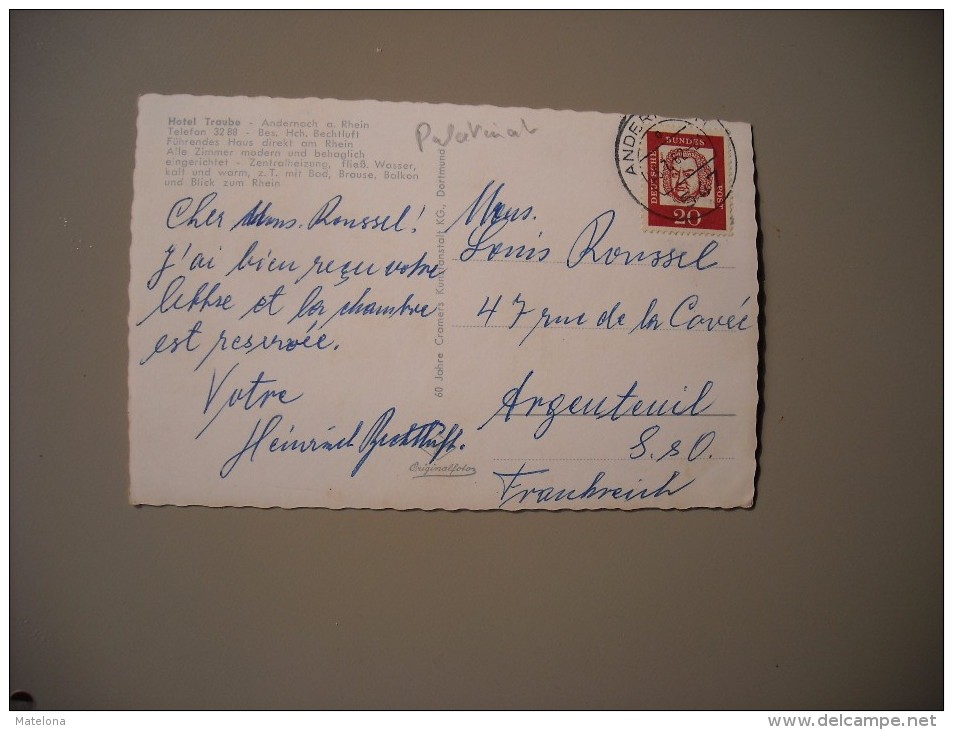 Hotel Traube - Andernach a. Rhein
Telefon 3288 - Bes. Hch. Bechtluft
Führendes Haus direkt am Rhein
Alle Zimmer modern und behaglich
eingerichtet - Zentralheizung, fließ. Wasser,
kalt und warm, z. T. mit Bad, Brause, Balkon
und Blick zum Rhein
Palatinat
Cher Mons. Roussel!
J'ai bien reçu votre
lettre et la chambre
est reservée.
Votre
Heinrich Bechtluft.
60 Jahre Cramers Kunstanstalt KG., Dortmund
Originalfoto
ANDER
DEUTSCHE BUNDESPOST
20
Mons.
Louis Roussel
47 rue de la Cavée
Argenteuil
S.s.O.
Frankreich
Matelona
www.delcampe.net